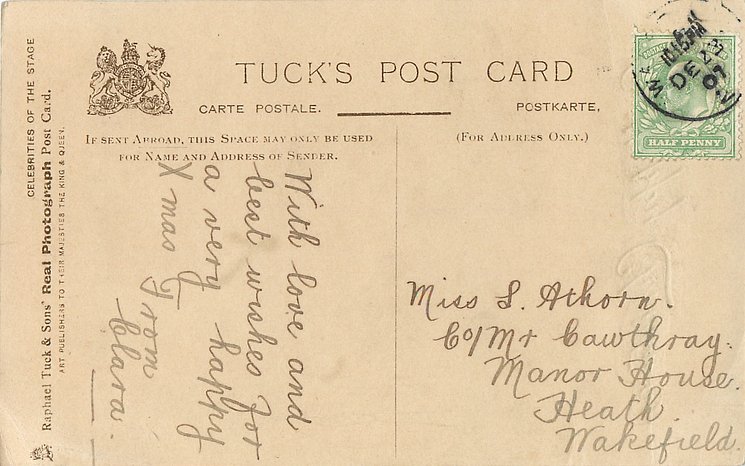 TUCK'S POST CARD
CARTE POSTALE.
POSTKARTE,
IF SENT ABROAD, THIS SPACE MAY ONLY BE USED
FOR NAME AND ADDRESS OF SENDER.
(FOR ADDRESS ONLY.)
HALF PENNY
CELEBRITIES OF THE STAGE
Raphael Tuck & Sons' Real Photograph Post Card.
ART PUBLISHERS TO THEIR MAJESTIES THE KING & QUEEN.
With love and
best wishes for
a very happy
Xmas From
Clara.
Miss S. Athorn.
C/o Mr Cawthray.
Manor House.
Heath
Wakefield.